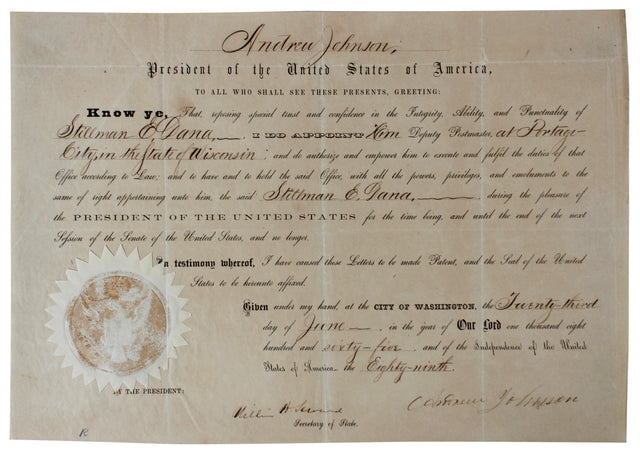 Andrew Johnson,
President of the United States of America,
TO ALL WHO SHALL SEE THESE PRESENTS, GREETING:
Know ye, That, reposing special trust and confidence in the Integrity, Ability, and Punctuality of
Stillman E. Dana, I DO APPOINT Him Deputy Postmaster, at Portage
City, in the State of Wisconsin; and do authorize and empower him to execute and fulfil the duties of that
Office according to Law; and to have and to hold the said Office, with all the powers, privileges, and emoluments to the
same of right appertaining unto him, the said Stillman E. Dana, during the pleasure of
the PRESIDENT OF THE UNITED STATES for the time being, and until the end of the next
Session of the Senate of the United States, and no longer.
In testimony whereof, I have caused these Letters to be made Patent, and the Seal of the United
States to be hereunto affixed.
Given under my hand, at the CITY OF WASHINGTON, the Twenty-third
day of June, in the year of Our Lord one thousand eight
hundred and sixty-five, and of the Independence of the United
States of America the Eighty-ninth.
BY THE PRESIDENT:
Andrew Johnson
William H. Seward
Secretary of State.
R